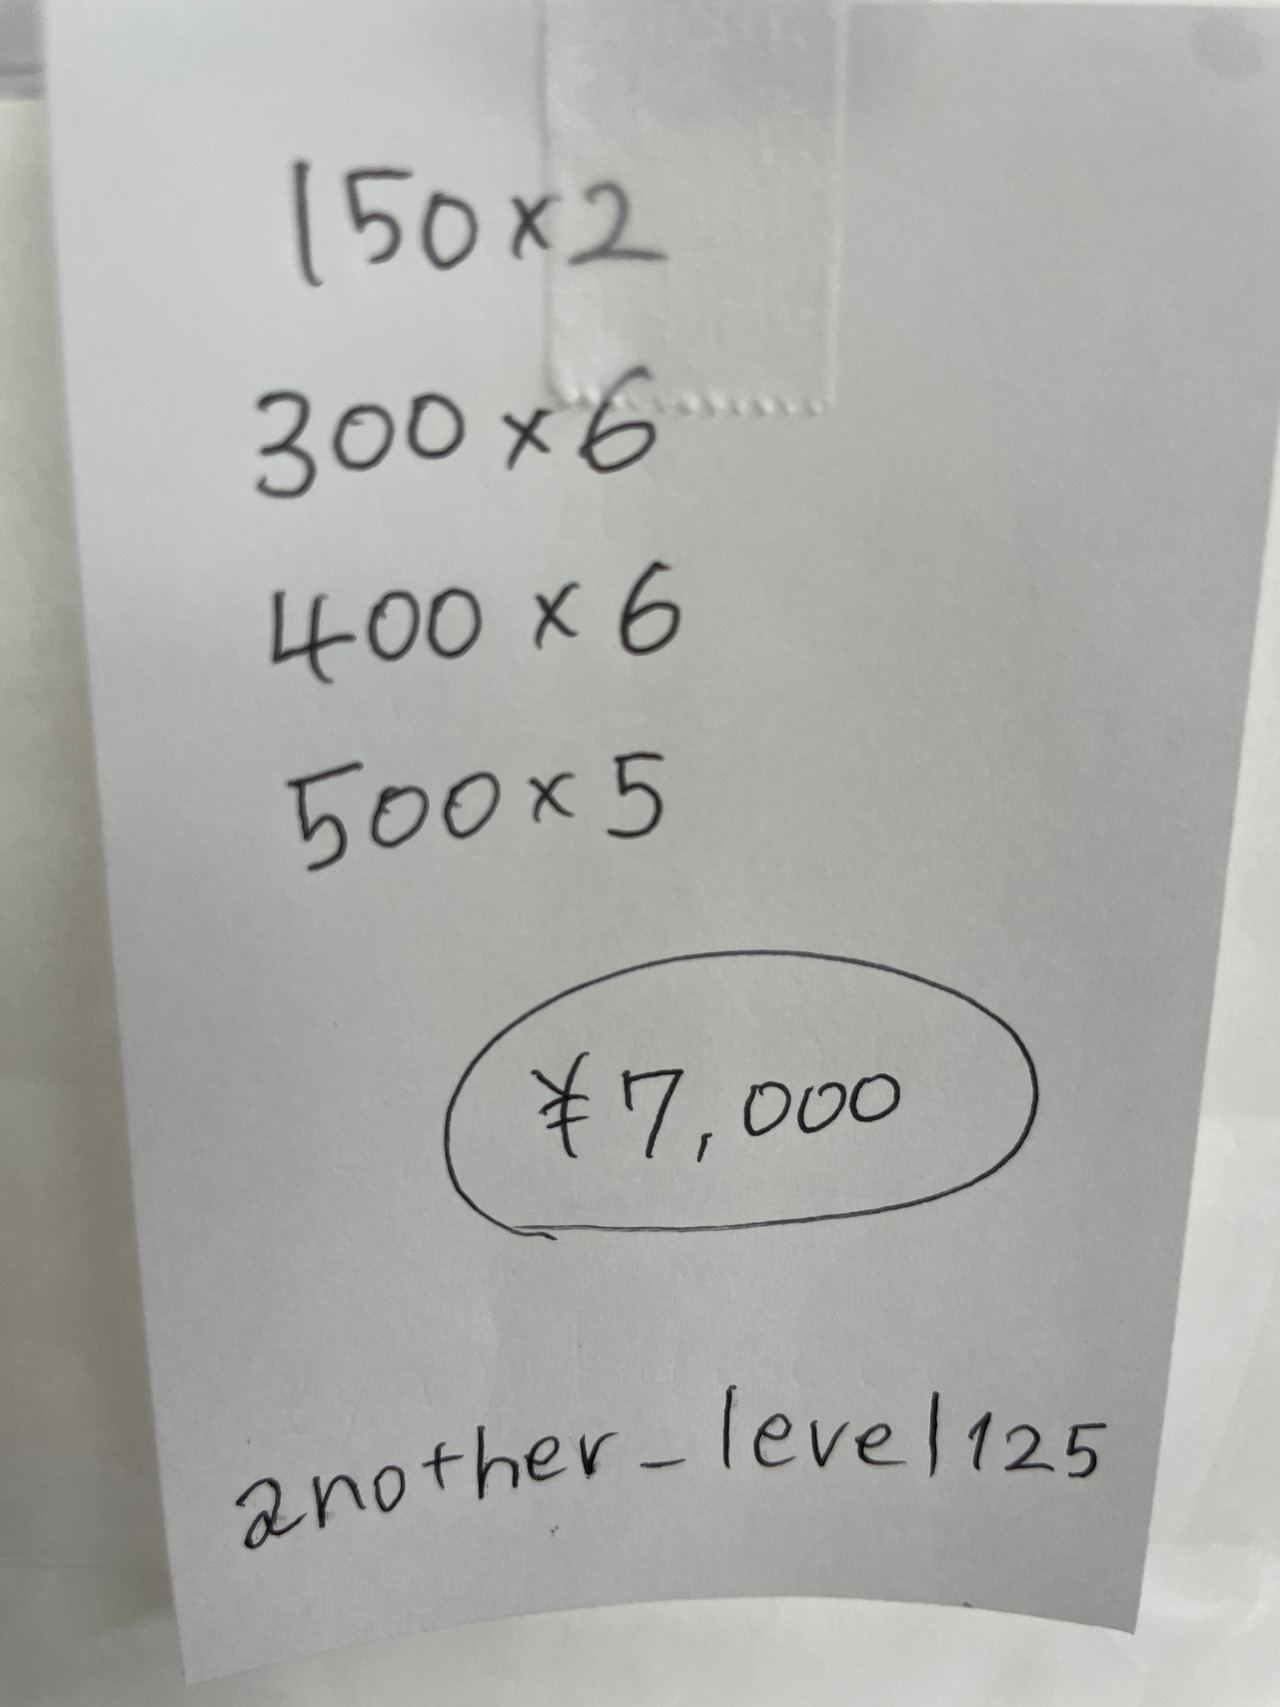 150×2
300×6
400×6
500×5
¥7,000
another_level125